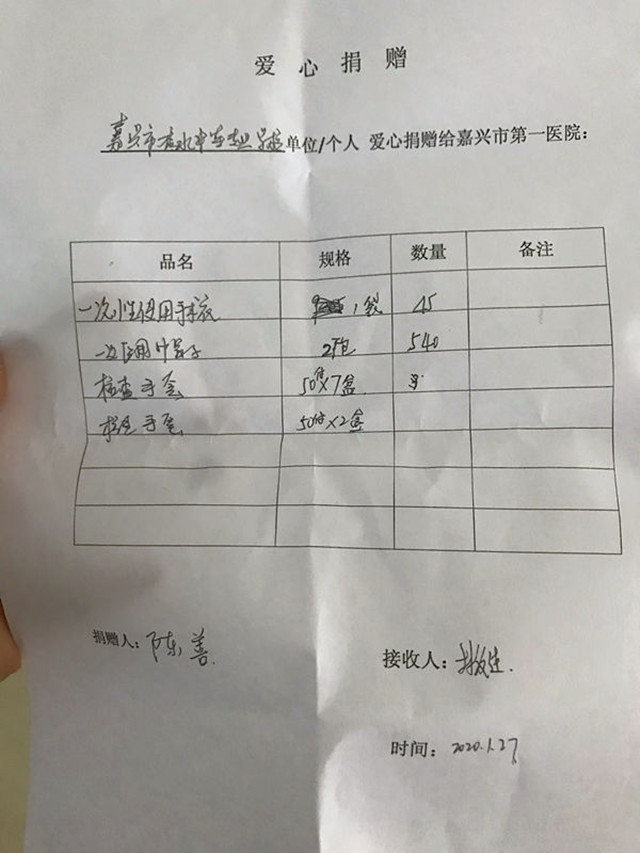 爱心捐赠
嘉兴市秀水中等专业学校单位/个人 爱心捐赠给嘉兴市第一医院：
品名 规格 数量 备注
一次性使用手术衣 1袋 45
一次医用中单 2包 540
检查手套 50付×7盒
检查手套 50付×2盒
捐赠人：陈善
接收人：
时间：2020.1.27